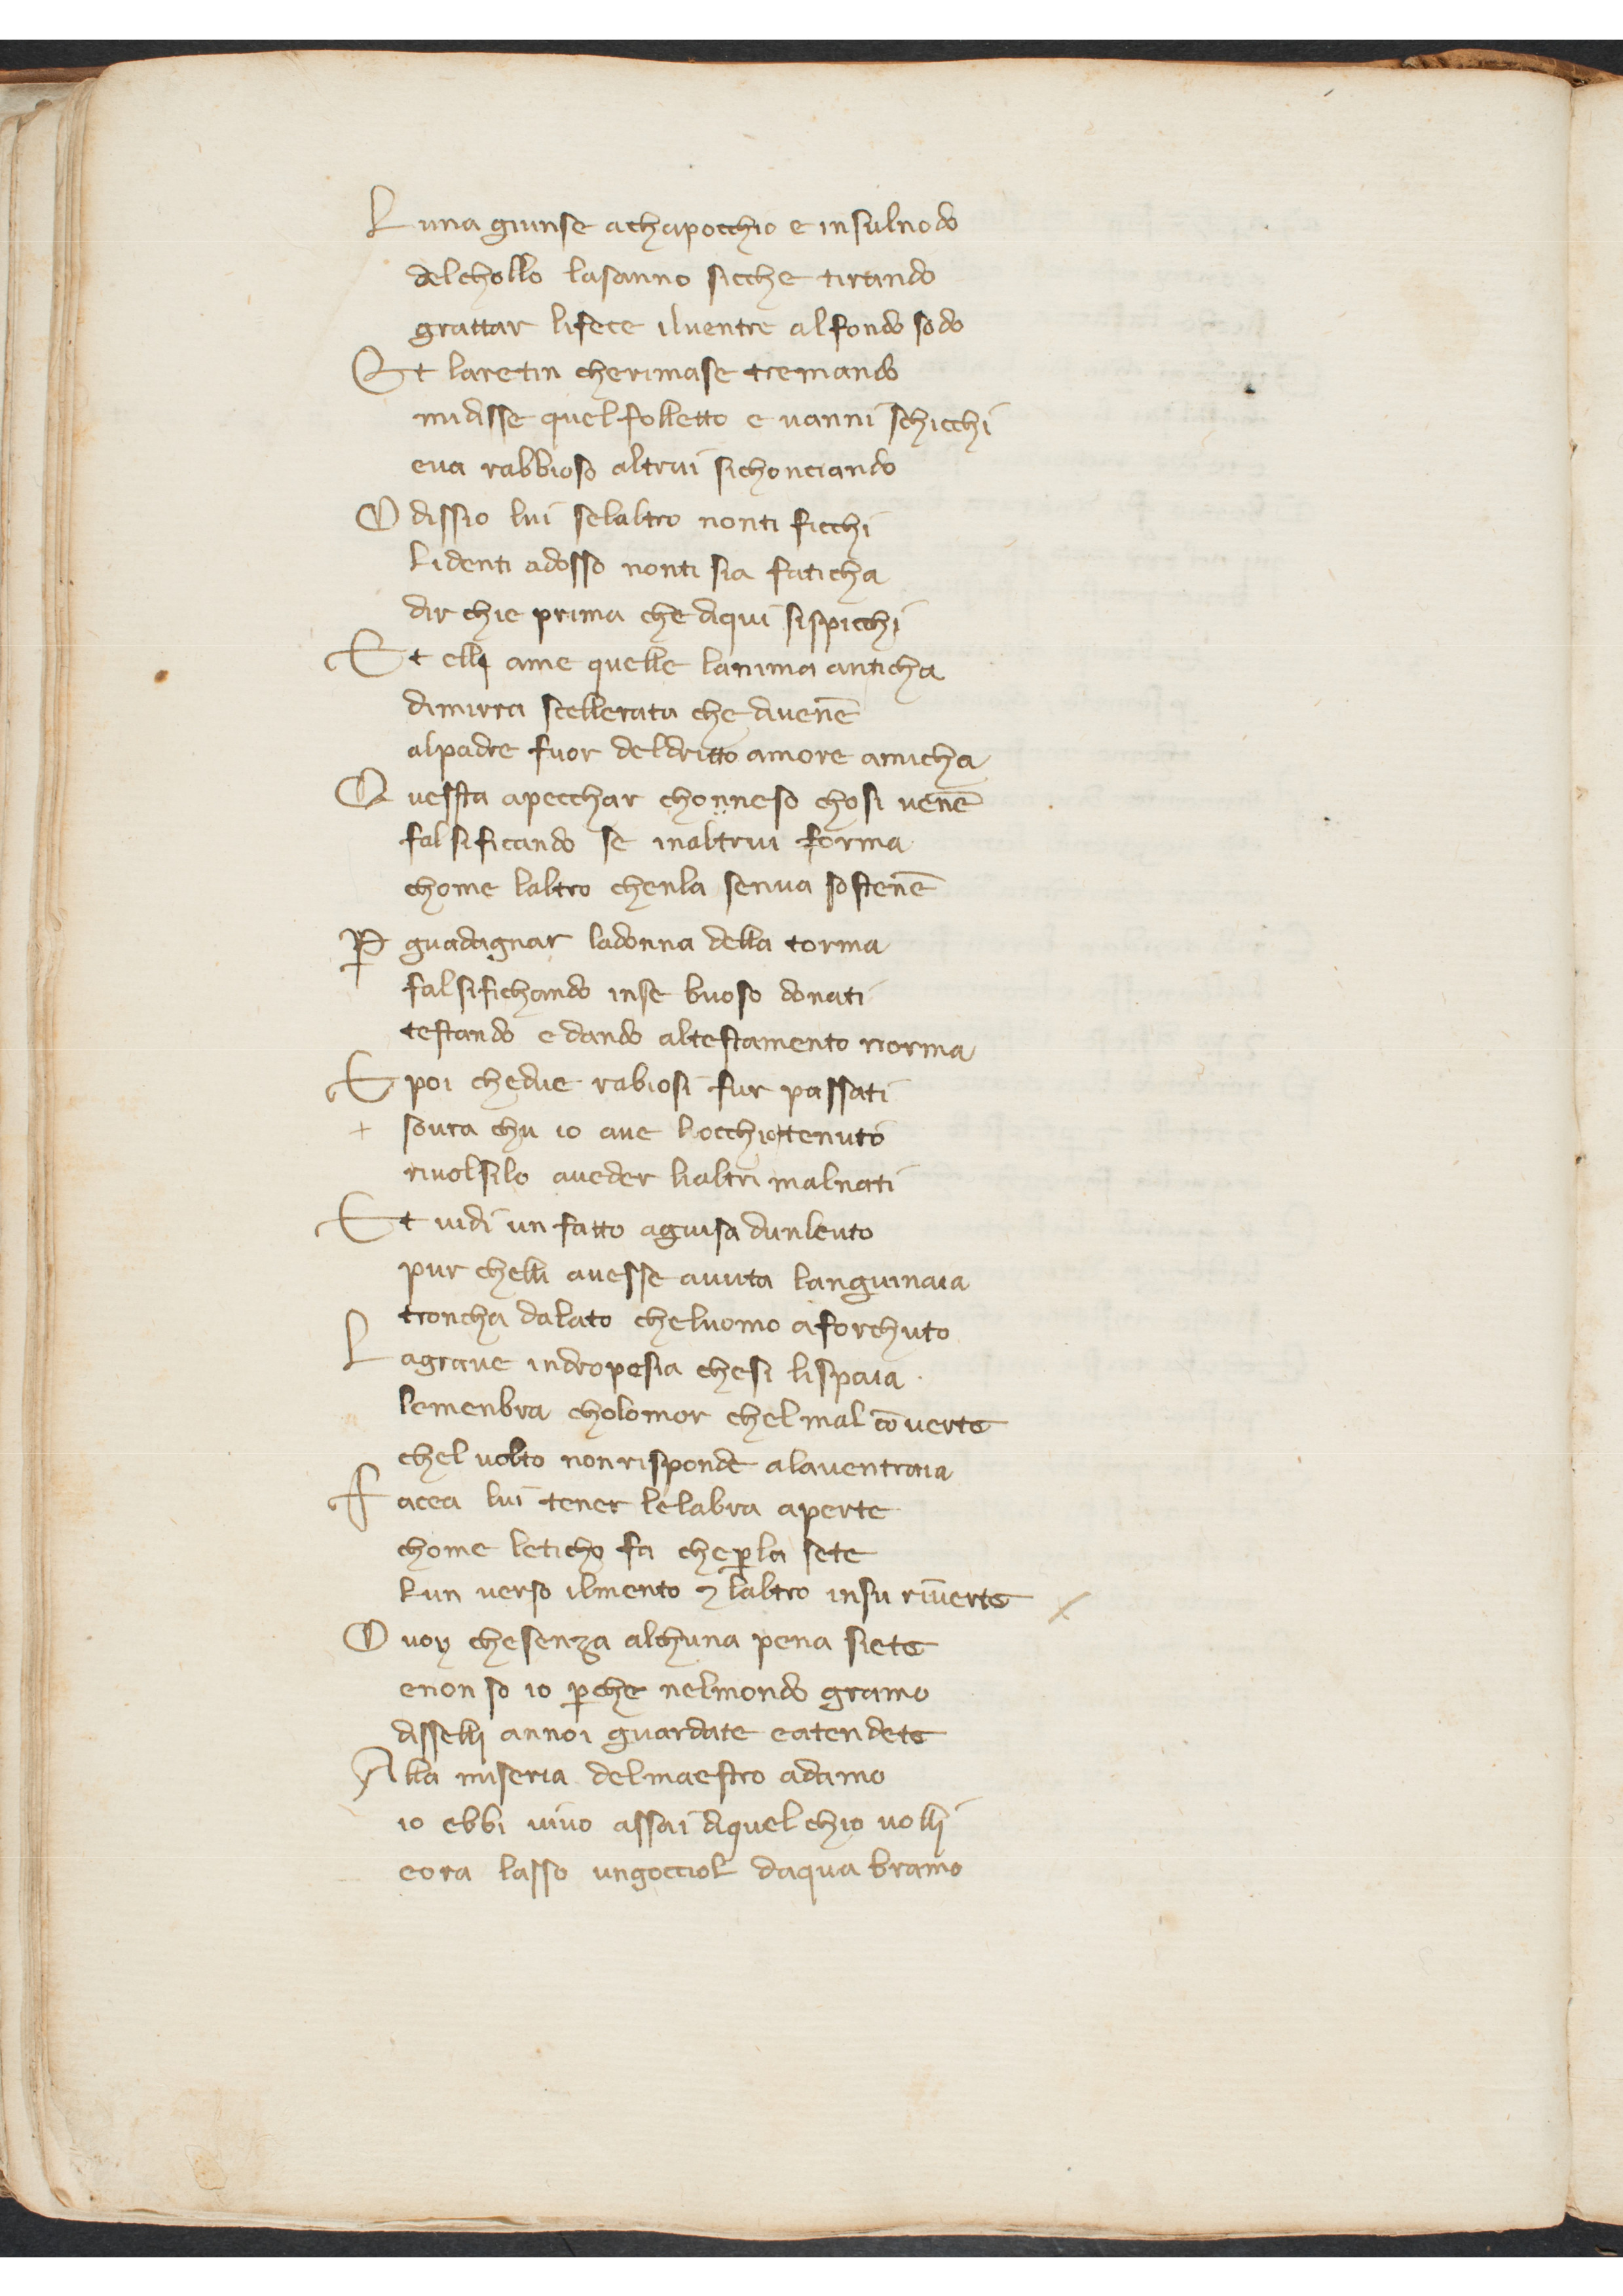 L una giunse achapocchio e insulnodo
delchollo lasanno sicche tirando
grattar lifece iluentre alfondo sodo
E t laretin cherimase tremando
midisse quel folletto e uanni schicchi
eua rabbioso altrui sichonciando
O dissio lui selaltro nonti ficchi
lidenti adosso nonti sia faticha
dir chie prima che diqui sispicchi
E t elli ame quelle lanima anticha
dimirra scellerata che diuenē
alpadre fuor deldritto amore amicha
Q uessta apecchar chonneso chosi uenē
falsificando se inaltrui forma
chome laltro chenla senua sostenē
P̱ guadagnar ladonna della torma
falsifichando inse buoso donati
testando e dando altestamento norma
E poi chedue rabiosi fur passati
+ soura chu io aue locchio tenuto
riuolsilo aueder lialtri malnati
E t uidi un fatto aguisa dunleuto
pur chelli auesse auuta languinaia
troncha dalato cheluomo aforchuto
L agraue indropesia chesi lispaia
lemenbra cholomor chel mal cōuerte
chel uolto nonrisponde alauentraia
F acea lui tener lelabra aperte
chome leticho fa chep̱la sete
lun uerso ilmento ⁊ laltro insu riūerte
O uoy chesenza alchuna pena siete
enon so io p̱che nelmondo gramo
disselli annoi guardate eatendete
A lla miseria delmaestro adamo
io ebbi uiuo assai diquel chio uolli
eora lasso ungocciol daqua bramo